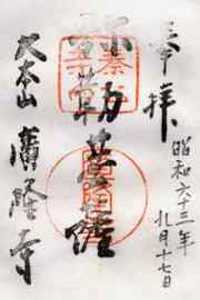 奉拝
昭和六十三年
九月十七日
弥勒菩薩
大本山
廣隆寺